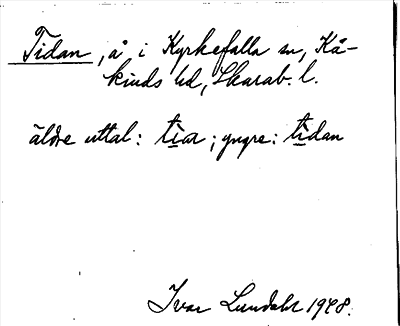 Tidan, å i Kyrkefalla sn, Kå-
kinds hd, Skarab. l.
äldre uttal: tiar; yngre: tidan
Ivar Lundahl 1948.